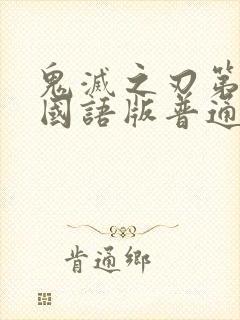 鬼滅之刃第
國語版普通
肯通鄉